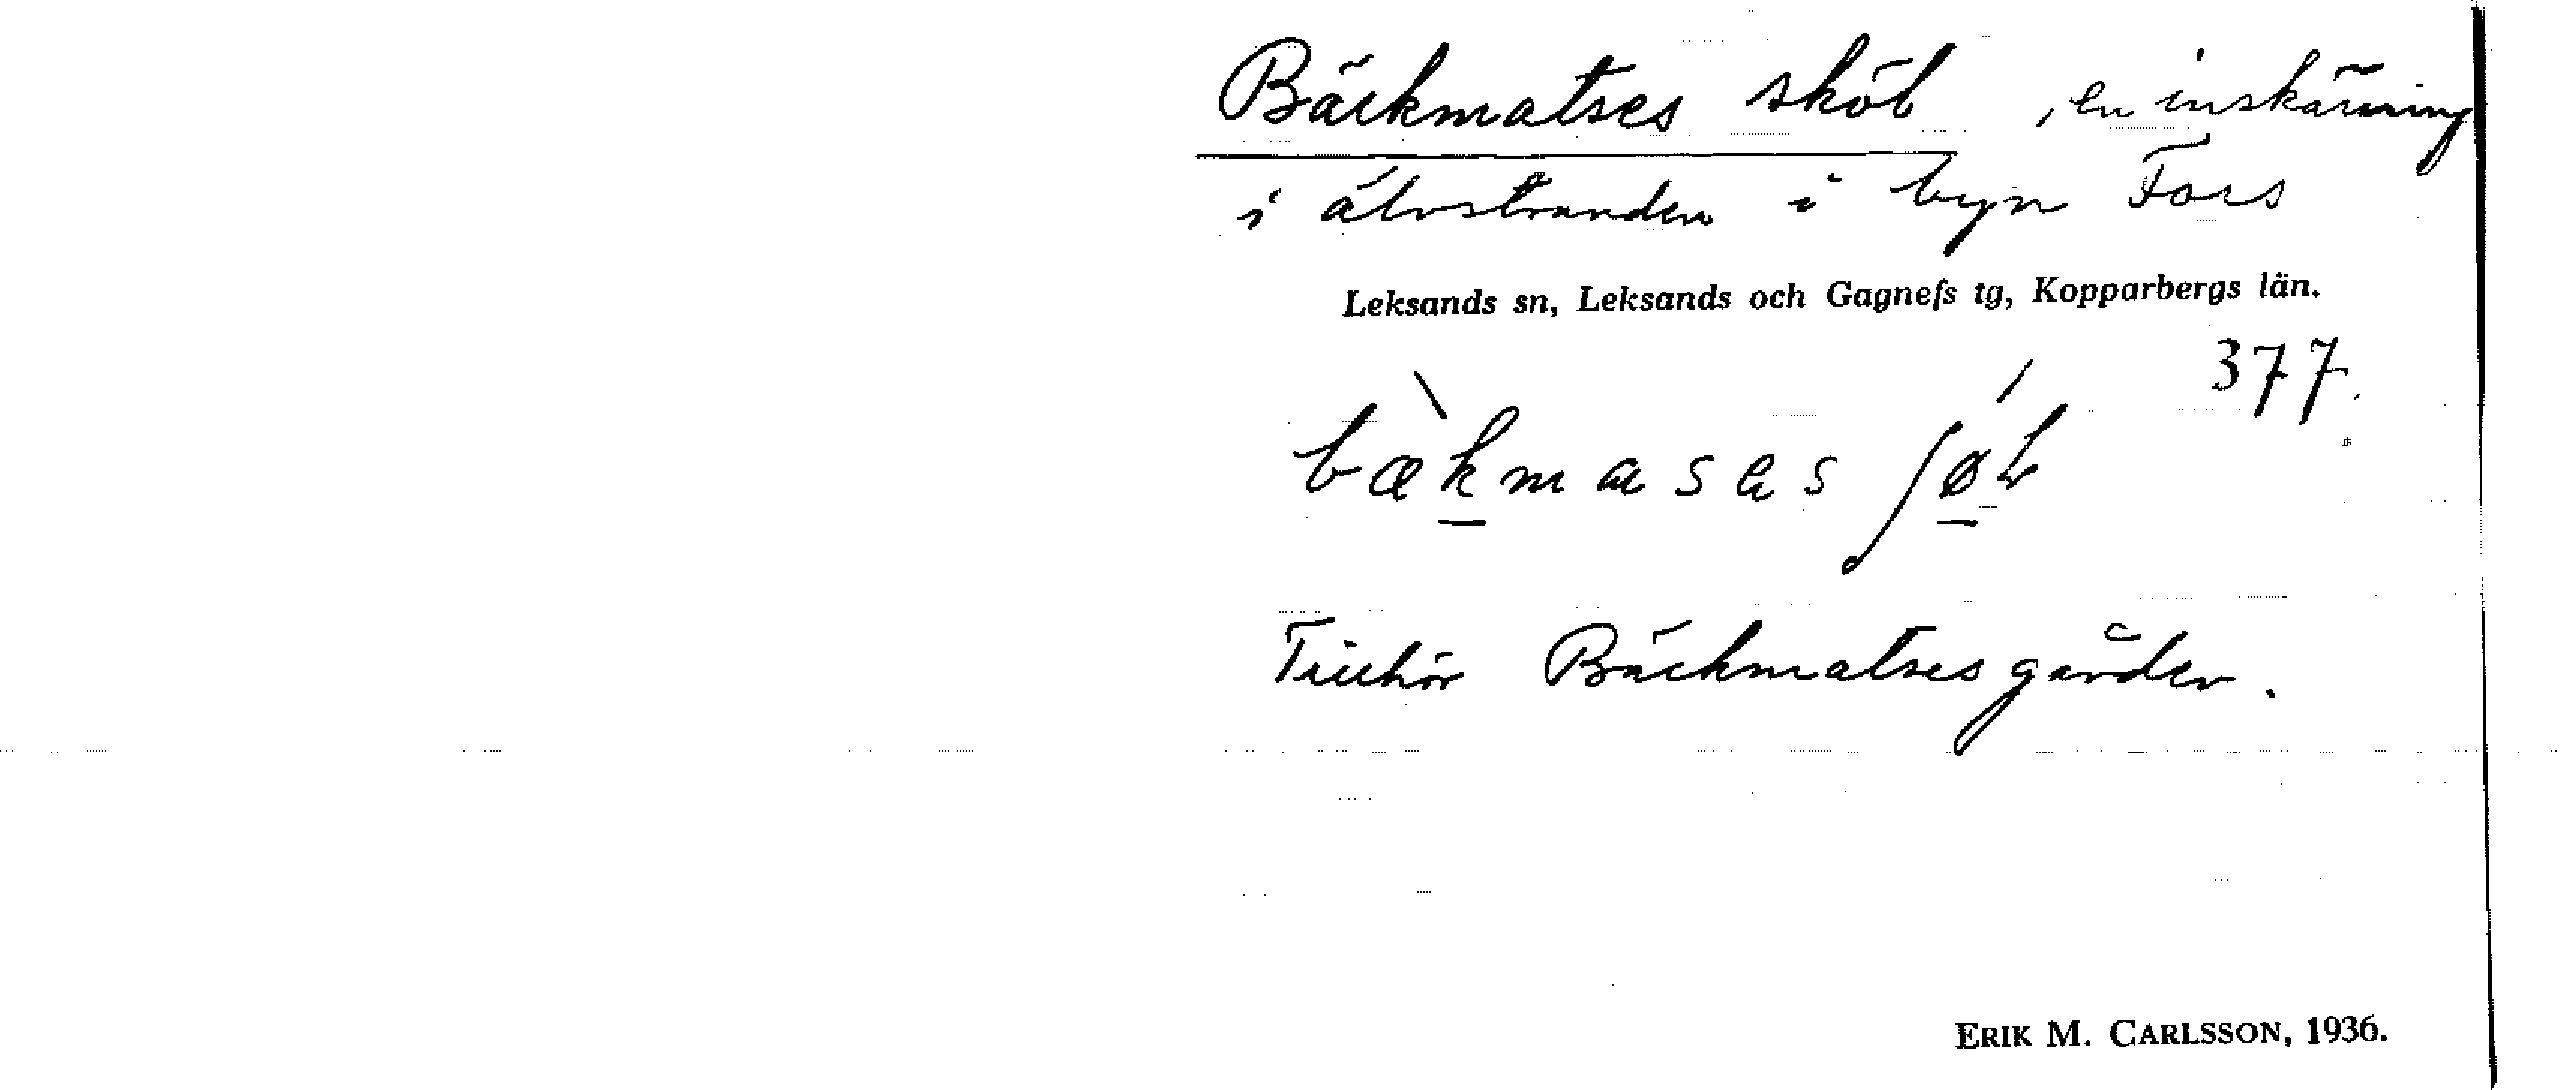 Bäckmatses sköt, en inskärning
i älvstranden i byn Fors
Leksands sn, Leksands och Gagnefs tg, Kopparbergs län.
377.
bækmasas ʃøt
Tillhör Bäckmatsesgården.
ERIK M. CARLSSON, 1936.